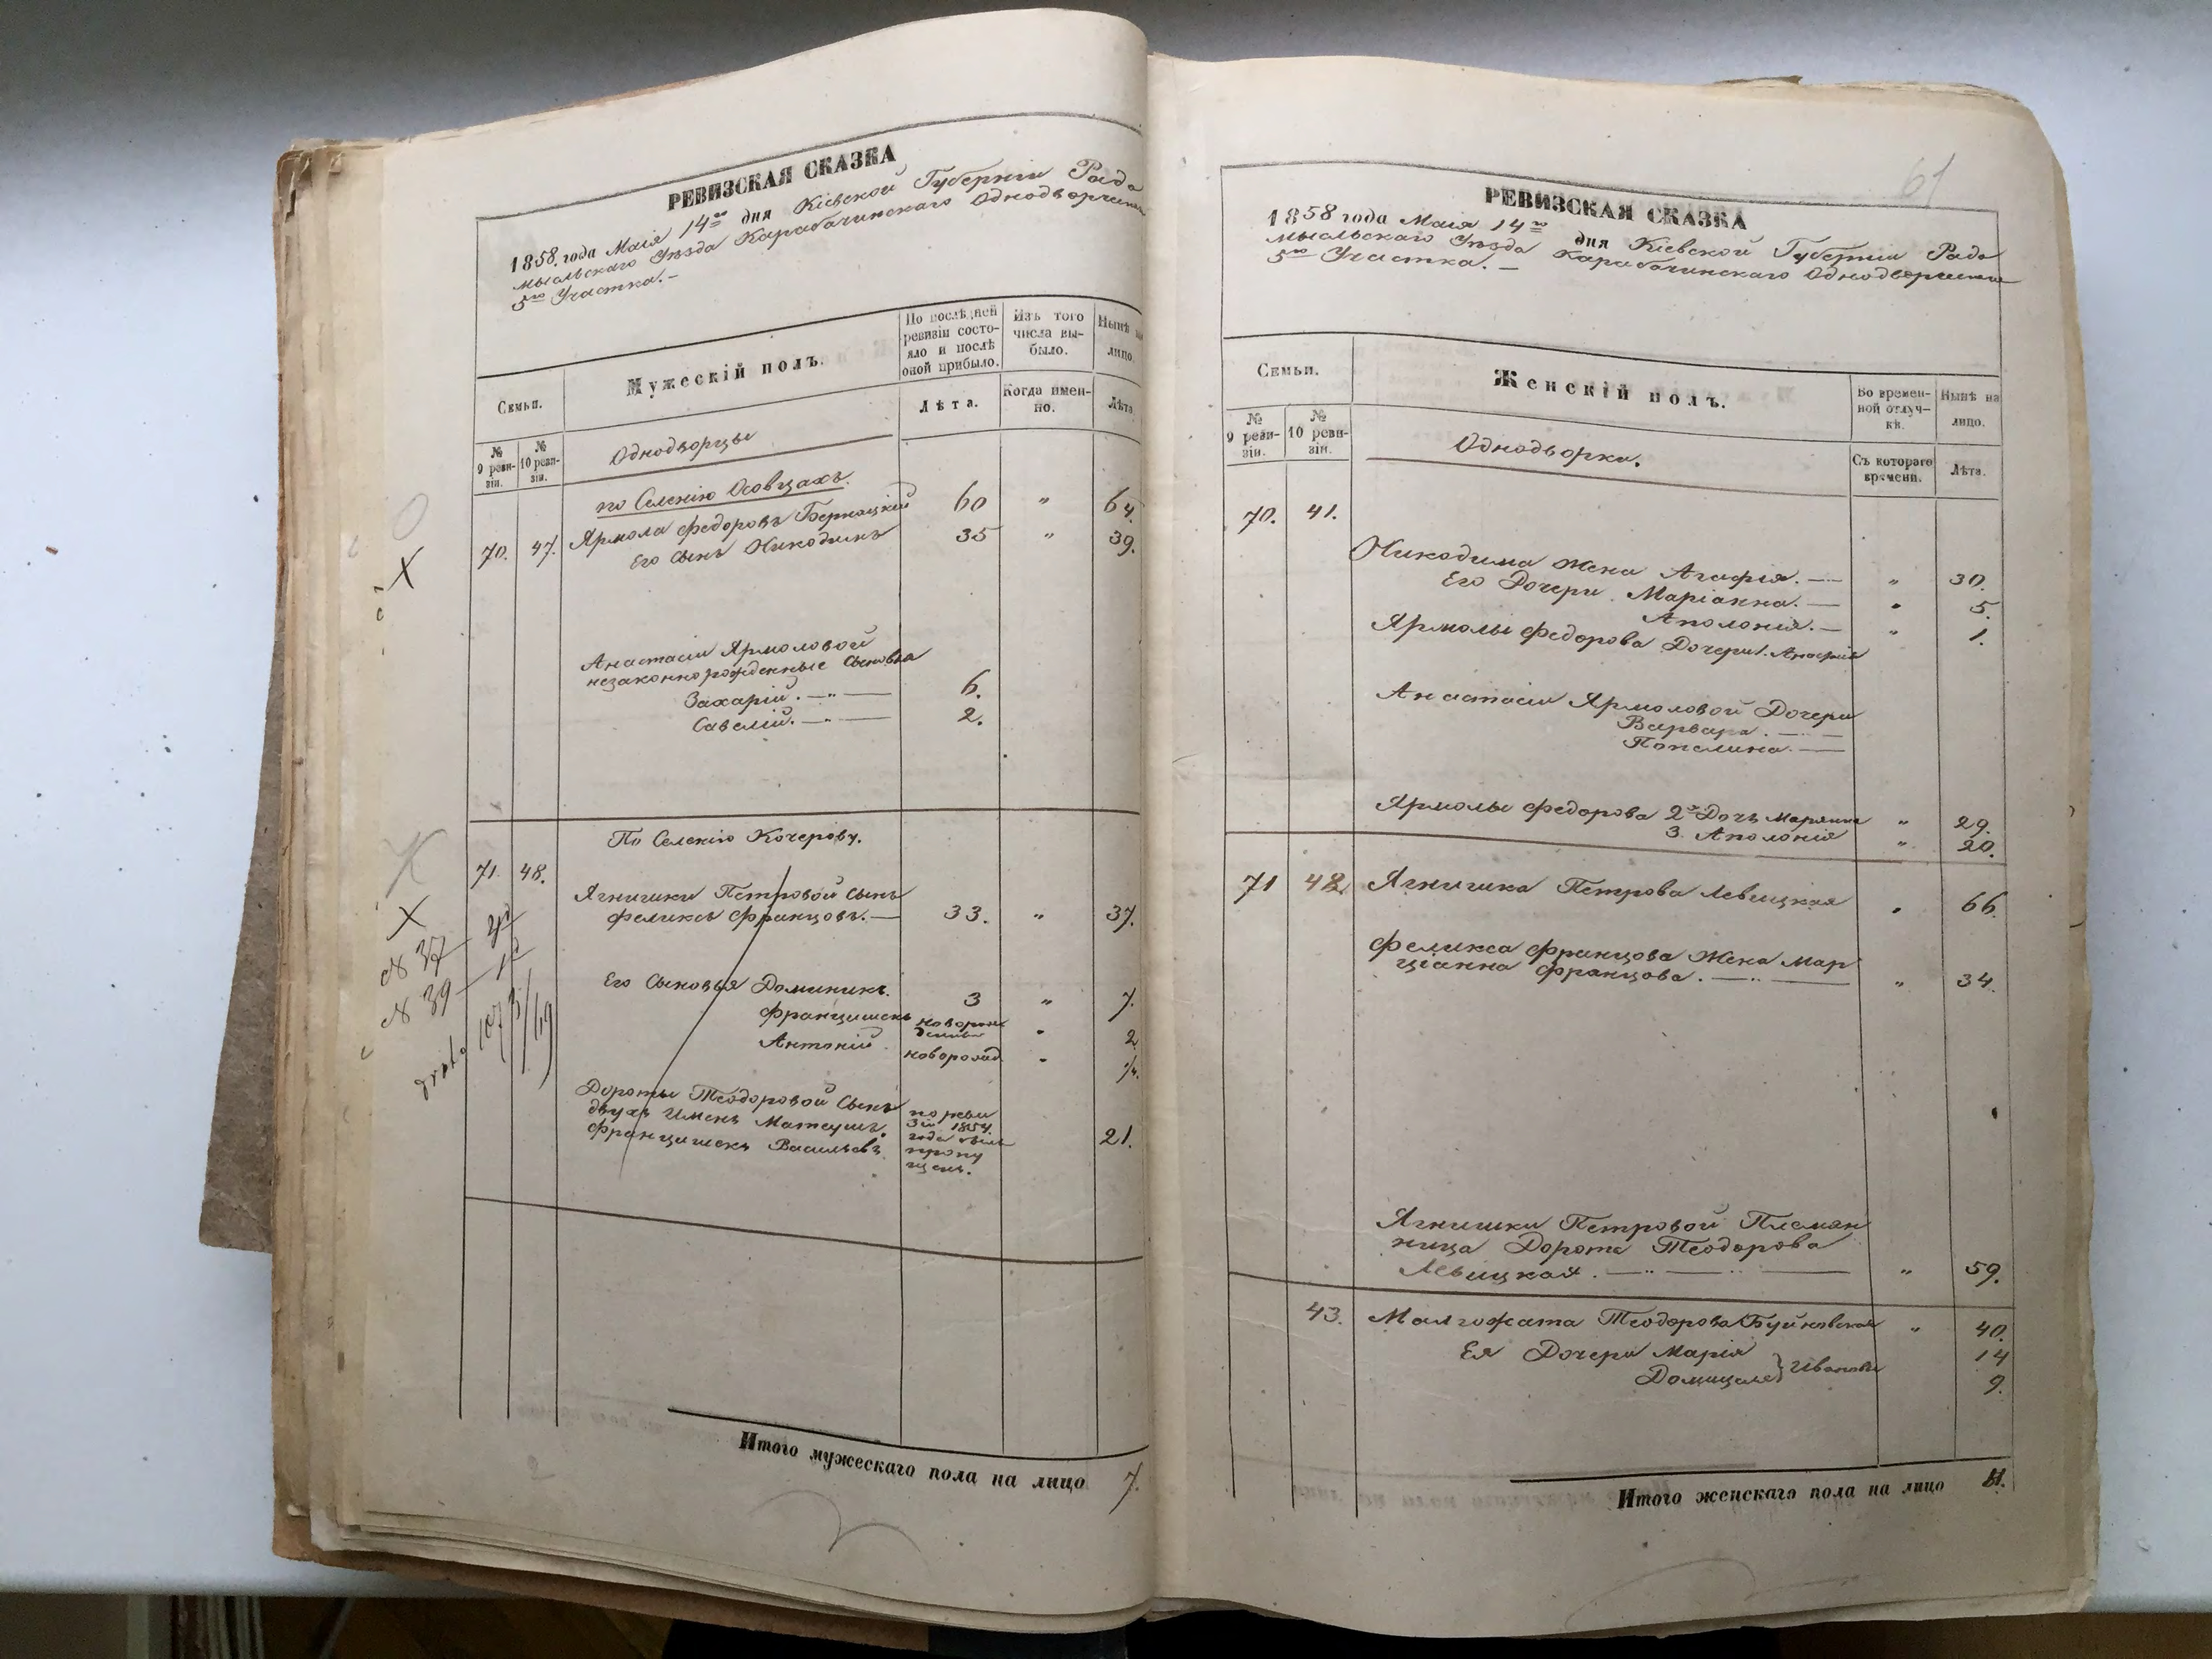 РЕВИЗСКАЯ СКАЗКА
1858. года Маія 14го дня Кіевской Губерніи Радо
мысльскаго Уѣзда Карабачинскаго Однодворческ
5го Участка.
Семьи.
Мужескій полъ.
По послѣдней ревизіи состо-
яло и послѣ
оной прибыло.
Изъ того
числа вы-
было.
Нынѣ на
лицо.
№
9 реви-
зіи.
№
10 реви-
зіи.
Лѣта.
Когда имен-
но.
Лѣта.
Однодворцы
по Селенію Осовцахъ.
70. 47. Ярмола Федоровъ Бернацкій 60 " 64.
Его Сынъ Никодимъ 35 " 39.
Анастасіи Ярмоловой
незаконнорожденные Сыновья
Захарій. 6.
Савелій. 2.
По Селенію Кочерову.
71. 48.
Ягнишки Петровой Сынъ
Феликсъ Францовъ. 33. " 37.
Его Сыновья Доминикъ. 3 " 7.
Францишекъ новорож
денный " 2
Антоній новорожд. "
Дороты Теодоровой Сынъ
двухъ Именъ Матеушъ.
Францишекъ Васильевъ
по реви
зіи 1854.
года былъ
пропу
щенъ.
21.
№ 37
№ 39
Итого мужескаго пола на лицо 7.
61
РЕВИЗСКАЯ СКАЗКА
1858 года Маія 14го дня Кіевской Губерніи Радо
мысльскаго Уѣзда Карабачинскаго Однодворческ
5го Участка.
Семьи.
Женскій полъ.
Во времен-
ной отлуч-
кѣ.
Нынѣ на
лицо.
№
9 реви-
зіи.
№
10 реви-
зіи.
Съ котораго
времени.
Лѣта.
Однодворки.
70. 41.
Никодима Жена Агафія. " 30.
Его Дочери Маріанна. " 5.
Аполонія. " 1.
Ярмолы Федорова Дочери 1.
Анастасіи Ярмоловой Дочери
Варвара.
Ярмолы Федорова 2я Дочь Марянна " 29.
3. Аполонія " 20.
71 42. Ягнишка Петрова Левицкая " 66.
Феликса Францова Жена Мар
ціанна Францова. " 34.
Ягнишки Петровой Племян
ница Дорота Теодорова
Левицкая. " 59.
43. Малгожата Теодорова Буйновская " 40.
Ея Дочери Марія 14
Домицеля } Ивановы 9.
Итого женскаго пола на лицо 11.